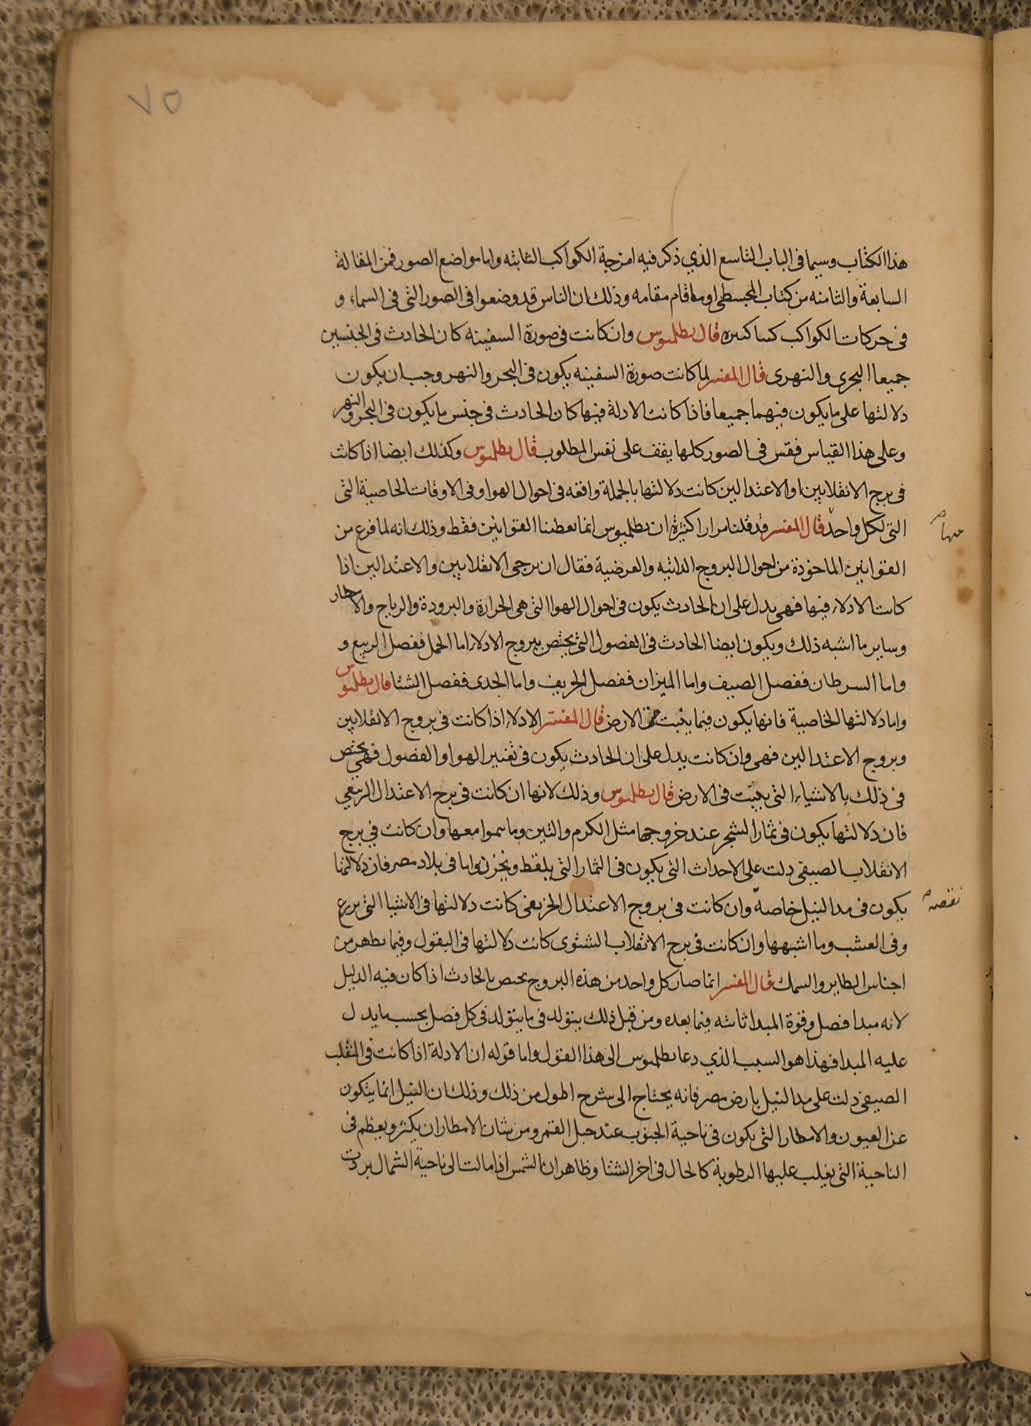 ٧٥
هذا الكتاب وسيما في الباب التاسع الذي ذكر فيه امزجة الكواكب الثابته واما مواضع الصور فمن المقالة
السابعة والثامنه من كتاب المجسطي او ما قام مقامه وذلك ان الناس قد وضعوا في الصور التي في السماء و
في حركات الكواكب كتبا كثيره قال بطلميوس وان كانت في صورة السفينه كان الحادث في الجنسين
جميعا البحري والنهرى قال المفسر لما كانت صورة السفينه يكون في البحر والنهر وجب ان يكون
دلالتها على ما يكون فيهما جميعا فاذا كانت الادلة فيها كان الحادث في جنس ما يكون في البحر والنهر
وعلى هذا القياس فقس في الصور كلها يقف على نفس المطلوب قال بطلميوس وكذلك ايضا اذا كانت
في برج الانقلابين او الاعتدالين كانت دلالتها بالجملة واقعه في احوال الهوا وفي الاوقات الخاصية التي
التي لكل واحد قال المفسر قد قلنا مرارا كثيرة ان بطلميوس انما يعطينا القوانين فقط وذلك انه لما فرغ من
منها
القوانين الماخوذة من احوال البروج الذاتيه والعرضية فقال ان برجي الانقلابين والاعتدالين اذا
كانت الادلاء فيها فهي يدل على ان الحادث يكون في احوال الهوا التي هي الحرارة والبرودة والرياح والامطار
وساير ما اشبه ذلك ويكون ايضا الحادث في الفصول التي يختص ببروج الادلاء اما الحمل ففصل الربيع و
واما السرطان ففصل الصيف واما الميزان ففصل الخريف واما الجدى ففصل الشتا قال بطلميوس
واما دلالتها الخاصية فانها يكون فيما ينبت من الارض قال المفسر الادلاء اذا كانت في بروج الانقلابين
وبروج الاعتدالين فهي وان كانت يدل على ان الحادث يكون في تغيير الهوا والفصول فهي يختص
في ذلك بالاشياء التي ينبت في الارض قال بطلميوس وذلك لانها ان كانت في برج الاعتدال الربيعي
فان دلالتها يكون في ثمار الشجر عند خروجها مثل الكرم والتين وما سموا معها وان كانت في برج
الانقلاب الصيفي دلت على الاحداث التي يكون في الثمار التي يلقط ويخزن واما في بلاد مصر فان دلالتها
يكون في مد النيل خاصة وان كانت في بروج الاعتدال الخريفي كانت دلالتها في الاشيا التي يزرع
وفي العشب وما اشبهها وان كانت في برج الانقلاب الشتوى كانت دلالتها في البقول وفيما يظهر من
اجناس الطاير والسمك قال المفسر انما صار كل واحد من هذه البروج يختص بالحادث اذا كان فيه الدليل
لانه مبدا فصل وقوة المبدا ثابته فيما بعده ومن قبل ذلك يتولد في ما يتولد في كل فصل بحسب ما يدل
عليه المبدا فهذا هو السبب الذي دعا بطلميوس الى هذا القول واما قوله ان الادلة اذا كانت في المنقلب
الصيفي دلت على مد النيل بارض مصر فانه يحتاج الى شرح اطول من ذلك وذلك ان النيل انما يتكون
عن العيون والامطار التي يكون في ناحية الجنوب عند جبل القمر ومن شان الامطار ان يكثر ويعظم في
الناحية التي يغلب عليها الرطوبة كالحال في اخر الشتا وظاهر ان الشمس اذا مالت الى ناحية الشمال بردت